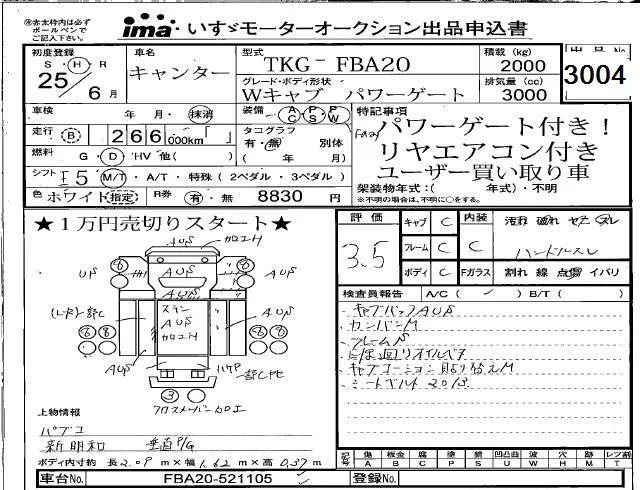 ※赤太枠内は必ず
ボールペンで
ご記入下さい。
ima いすゞモーターオークション出品申込書
初度登録 S・H・R 25年 6月
車名 キャンター
型式 TKG-FBA20
積載 (kg) 2000
グレード・ボディ形状 Wキャブ パワーゲート
排気量 (cc) 3000
3004
車検 年・月・抹消
装備 AC PS PW
特記事項
走行 B 266,000km
タコグラフ 有・無 別体
( 年 月)
FA20 パワーゲート付き!
リヤエアコン付き
ユーザー買い取り車
燃料 G・D・HV 他( )
シフト F5 M/T・A/T・特殊 (2ペダル・3ペダル)
架装物年式:( 年式)・不明
※不明の場合は、不明に○をする。
色 ホワイト 指定
R券 有・無 8830 円
★1万円売切りスタート★
評価 3.5
キャブ C 内装 C
フレーム C
ボディ C Fガラス
汚れ 破れ ヤケ スレ
ハンドルスレ
割れ 線 点傷 イバリ
検査員報告 A/C ( ) B/T ( )
キャブバックAUS
カンバンM
フレームS
シートベルト 2013
AUS カロエH
US AUS AUS
AUS
ステン
AUS
カロエH
AUS
フロスメーバーカロエ
上物情報
パブコ
新明和 垂直P/G
ボディ内寸約 長 2.09 m×幅 1.62 m×高 0.37 m
記号 傷 A 板金 B 腐 C 塗 P 錆 S 凹凸曲 U 波 W 穴 H 跡 M レツ割 T
車台No. FBA20-521105
登録No.